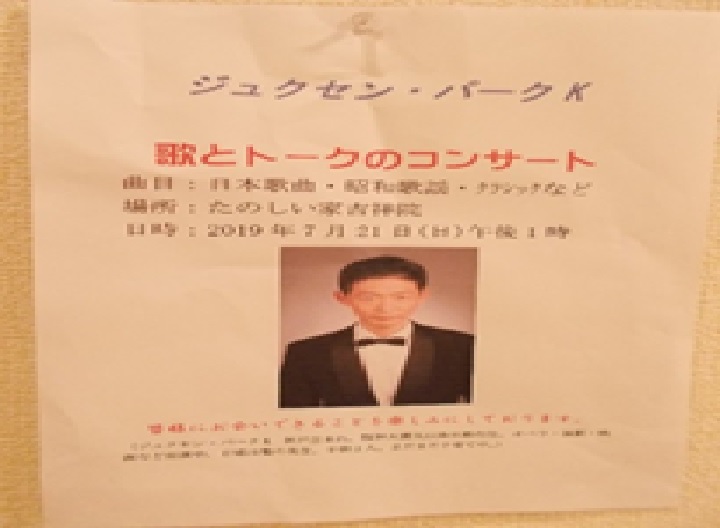 ジュクセン・パークK
歌とトークのコンサート
曲目：日本歌曲・昭和歌謡・クラシックなど
場所：たのしい家吉祥院
日時：2019年7月21日(日)午後1時
皆様にお会いできることを楽しみにしております。
（ジュクセン・パークK